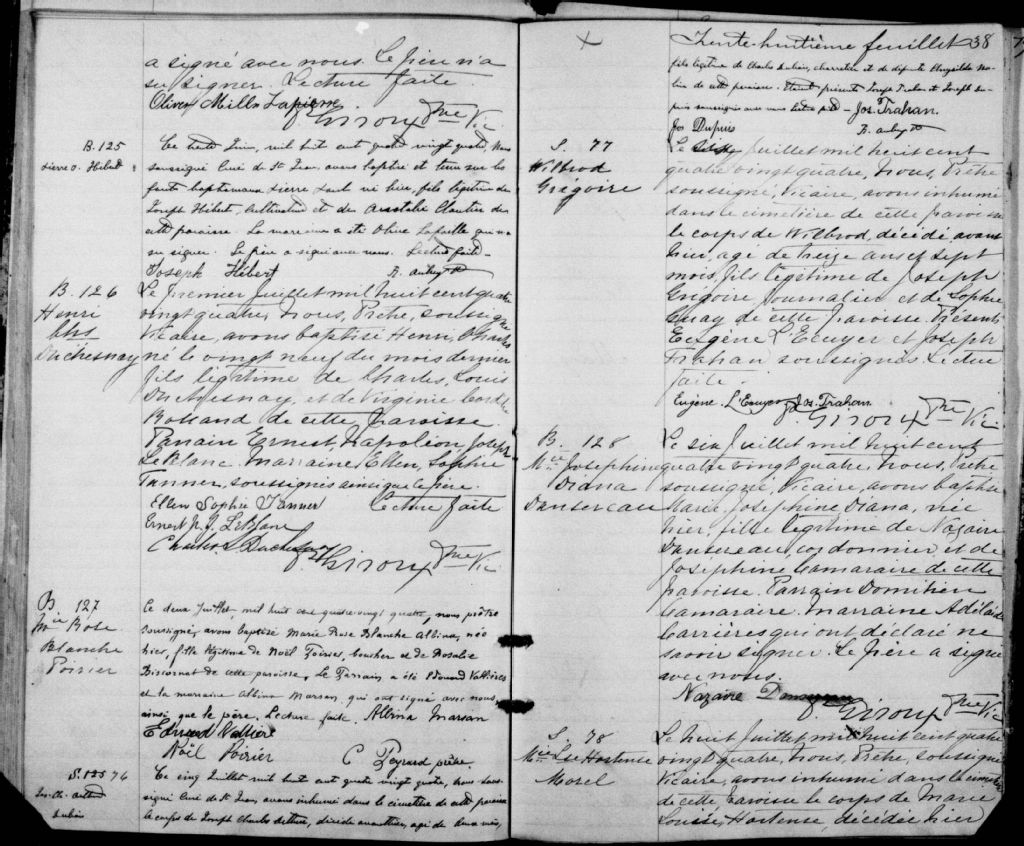 a signé avec nous. Le père n'a
su signer. Lecture faite.
Oliver Mills Lapierre
Giroux Ptre Vic
B. 125
Pierre O. Hébert
Ce trente Juin, mil huit cent quatre vingt quatre, nous
soussigné Curé de St Jean, avons baptisé et tenu sur les
fonts baptismaux Pierre né hier, fils légitime de
Joseph Hébert, Cultivateur et de Anastasie Cloutier de
cette paroisse. La marraine a été Olive qui n'a
su signer. Le père a signé avec nous. Lecture faite.
Joseph Hébert
B. 126
Henri
Chs
Duchesnay
Le premier Juillet mil huit cent quatre
vingt quatre, Nous, Prêtre, soussigné
Vicaire, avons baptisé Henri, Charles
né le vingt neuf du mois dernier
fils légitime de Charles, Louis
Duchesnay, et de Virginie
Rolland de cette Paroisse.
Parrain Ernest, Napoléon, Joseph
LeBlanc, Marraine, Ellen, Sophie
Tanner, soussignés ainsi que le père.
Lecture faite
Ellen Sophie Tanner
Ernest N. J. LeBlanc
Charles L Duchesnay
Giroux Ptre Vic
B. 127
Mie Rose
Blanche
Poirier
Ce deux Juillet, mil huit cent quatre vingt quatre, nous prêtre
soussigné, avons baptisé Marie Rose Blanche Albina, née
hier, fille légitime de Noël Poirier, boucher et de Rosalie
Bissonnet de cette paroisse. Le Parrain a été Edouard Vallières
et la marraine Albina Marsan, qui ont signé avec nous
ainsi que le père. Lecture faite. Albina Marsan
Edouard Vallière
Noël Poirier C Peyrard prêtre
S. 76
Jos. Ch. Arthur
Dubois
Ce cinq Juillet mil huit cent quatre vingt quatre, nous sous-
signé Curé de St Jean, avons inhumé dans le cimetière de cette paroisse
le corps de Joseph Charles Arthur, décédé avant hier, agé de deux mois,
Trente-huitième feuillet 38
fils légitime de Charles Dubois, charretier et de défunte
de cette paroisse. Etaient présents Joseph Trahan et Joseph Du-
puis soussignés avec nous. Jos. Trahan.
Jos Dupuis
S. 77
Wilbrod
Grégoire
Le six, Juillet mil huit cent
quatre vingt quatre, Nous, Prêtre
soussigné, Vicaire, avons inhumé
dans le cimetière de cette paroisse
le corps de Wilbrod, décédé avant
hier, agé de treize ans et sept
mois, fils légitime de Joseph
Grégoire Journalier et de Sophie
Guay de cette paroisse. Présents
Eugène L'Ecuyer et Joseph
Trahan soussignés. Lecture
faite.
Eugène L'Ecuyer Jos. Trahan
Giroux Ptre Vic
B. 128
Mie Josephine
Diana
Dansereau
Le six Juillet mil huit cent
quatre vingt quatre, Nous, Prêtre
soussigné, Vicaire, avons baptisé
Marie Josephine Diana, née
hier, fille légitime de Nazaire
Dansereau, cordonnier, et de
Josephine Camaraire de cette
paroisse. Parrain Domitien
Camaraire. Marraine Adélaïde
Carrières qui ont déclaré ne
savoir signer. Le père a signé
avec nous.
Nazaire
Giroux Ptre Vic
S. 78
Mie Lse Hortense
Morel
Le huit Juillet mil huit cent quatre
vingt quatre, Nous, Prêtre, soussigné
Vicaire, avons inhumé dans le cimetière
de cette Paroisse le corps de Marie
Louise, Hortense, décédée hier